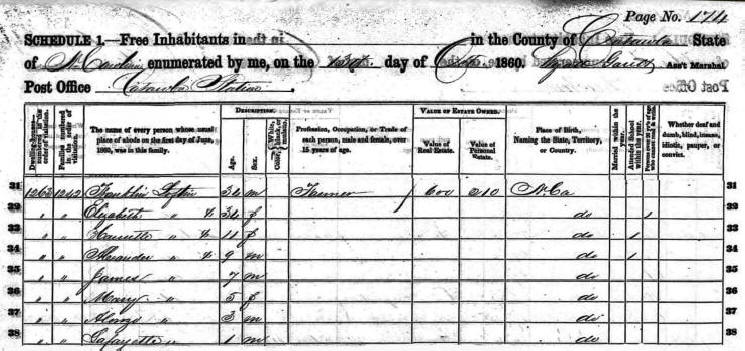 Page No. 174
SCHEDULE 1.—Free Inhabitants in in the County of Catawba State
of N. Carolina enumerated by me, on the day of 1860. Ass't Marshal
Post Office Catawba Station
Dwelling-houses numbered in the order of visitation.
Families numbered in the order of visitation.
The name of every person whose usual place of abode on the first day of June, 1860, was in this family.
DESCRIPTION.
Age.
Sex.
Color, {White, black, or mulatto.
Profession, Occupation, or Trade of each person, male and female, over 15 years of age.
VALUE OF ESTATE OWNED.
Value of Real Estate.
Value of Personal Estate.
Place of Birth, Naming the State, Territory, or Country.
Married within the year.
Attended School within the year.
Persons over 20 y'rs of age who cannot read & write.
Whether deaf and dumb, blind, insane, idiotic, pauper, or convict.
31 1262 1242 Franklin 36 m Farmer 600 210 N. Ca 31
Elizabeth " 36 f do 1
33 " " " 11 f do 1 33
34 " " Alexander " 9 m do 1 34
35 " " James " 7 m do 35
36 " " Mary " 5 f do 36
37 " " Alonzo " 3 m do 37
38 " " Lafayette " 1 m do 38